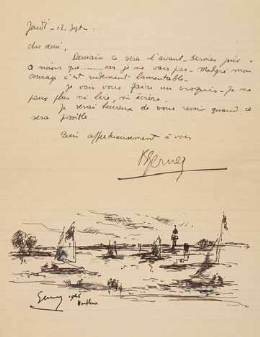 Jeudi - 12 Sept -
cher ami,
Demain ce sera l'avant-dernier jour -
à moins que ... car je ne vais pas - Malgré mon
courage c'est rudement lamentable -
Je vais vous faire un croquis - Je ne
peux plus ni lire, ni écrire -
Je serai heureux de vous revoir quand ce
sera possible
affectueusement à vous